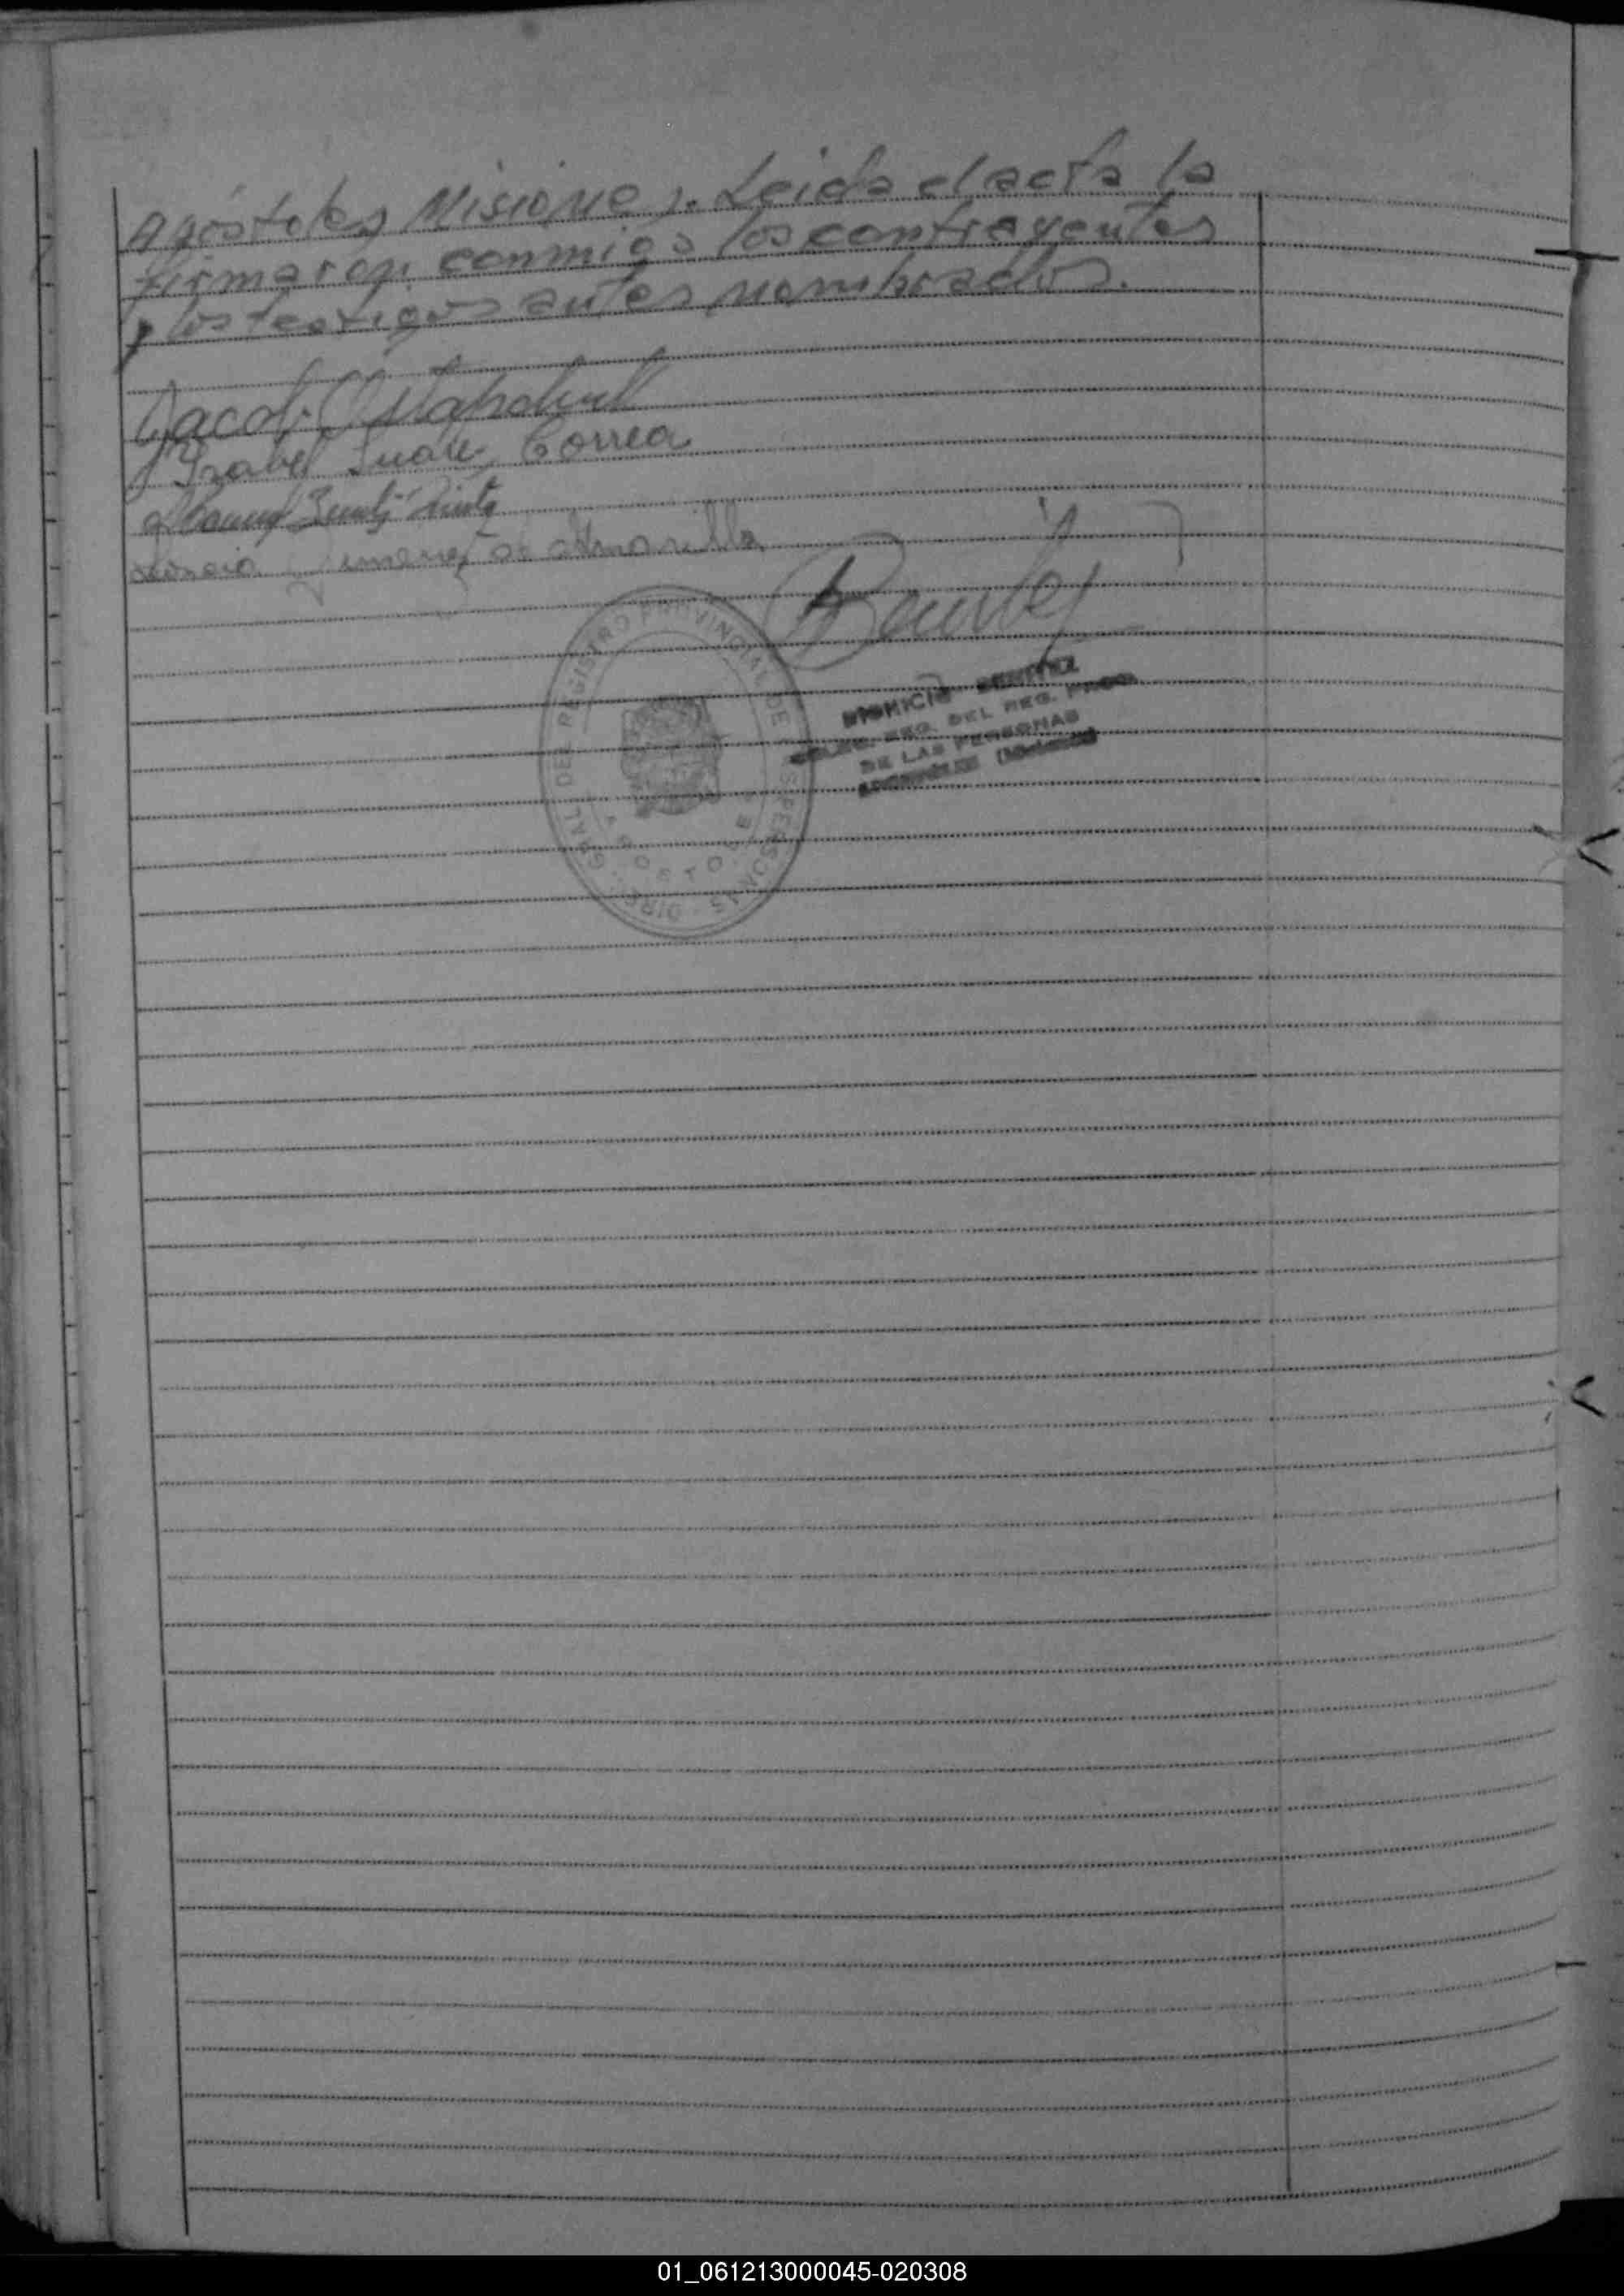 Apóstoles Misiones. Leida el acta la
firmaron conmigo los contrayentes
y los testigos antes nombrados.
Jacob
Isabel Suare Correa
Jimenez de Amarilla
Benitez
DIRC. GRAL DEL REGISTRO PROVINCIAL DE LAS PERSONAS
APOSTOLES
DIONICIO BENITEZ
DELEG. ENC. DEL REG. PROV.
DE LAS PERSONAS
APOSTOLES (Misiones)
01_061213000045-020308